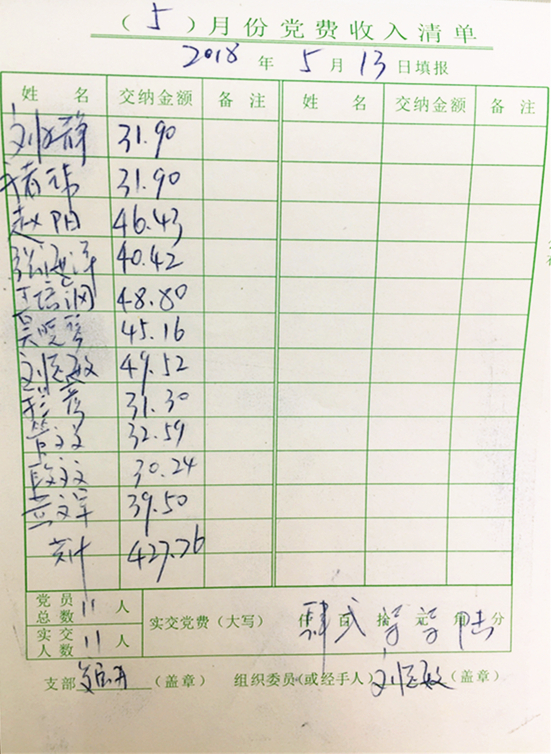 （5）月份党费收入清单
2018 年 5 月 13 日填报
姓 名 交纳金额 备 注 姓 名 交纳金额 备 注
刘 静 31.90
31.90
赵阳 46.43
40.42
48.80
吴 45.16
刘 敏 49.52
31.30
管文 32.59
段文 30.24
黄文军 39.50
共计 427.76
党员总数 11 人
实交党费（大写） 仟 百 拾 元 角 分
肆 贰 柒 柒 陆
实交人数 11 人
支部（盖章） 组织委员(或经手人) 刘 敏（盖章）